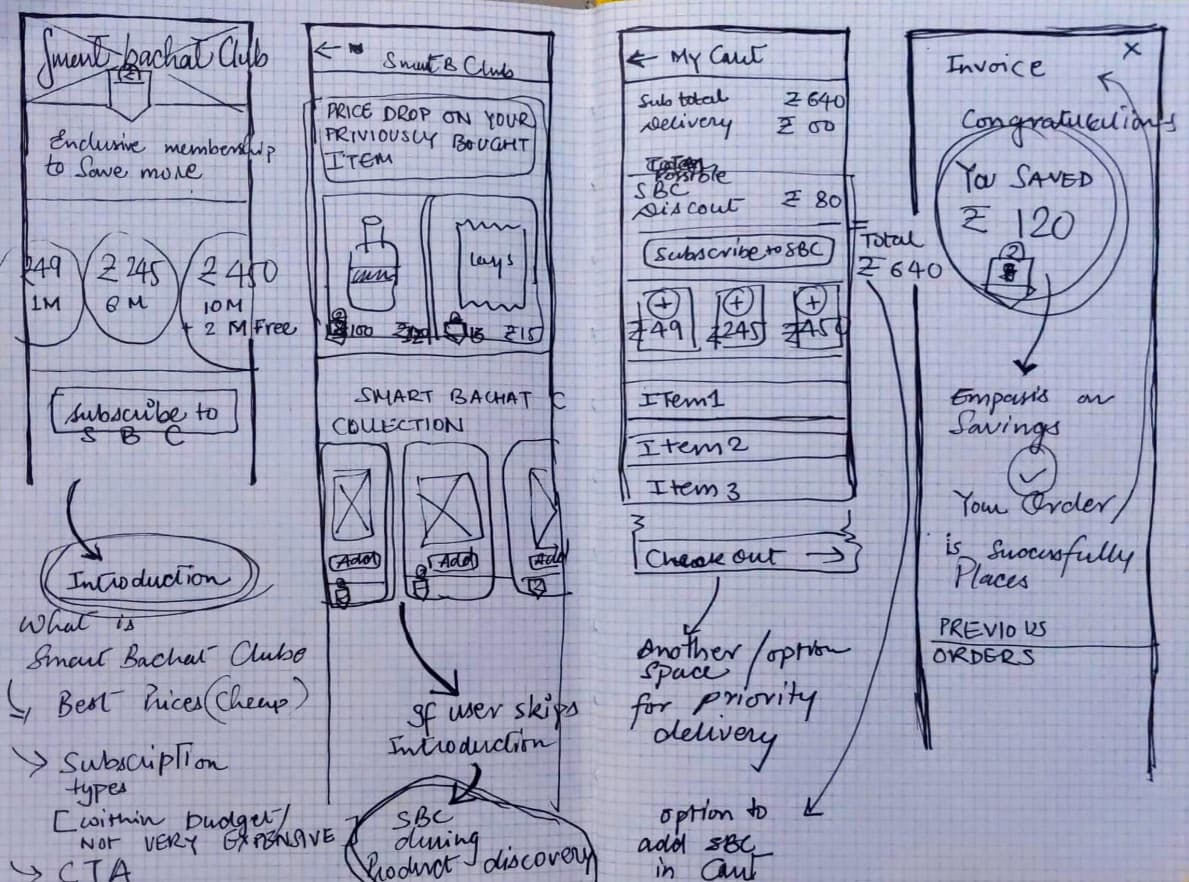 Smart bachat Club
Exclusive membership
to Save more
249
1M
₹ 245
6 M
₹ 450
10M
+ 2 M Free
Subscribe to
S B C
Introduction
What is
Smart Bachat Club
Best Prices (Cheap)
Subscription
types
[within budget/
NOT VERY EXPENSIVE]
CTA
Smart B Club
PRICE DROP ON YOUR
PRIVIOUSLY BOUGHT
ITEM
lays
100
15
₹15
SMART BACHAT C
COLLECTION
Add
Add
Add
If user skips
Introduction
SBC
during
Product discovery
My Cart
Sub total ₹ 640
Delivery ₹ 00
Possible
SBC
Discout ₹ 80
Subscribe to SBC
₹49
₹245
₹450
ITem1
Item 2
Item 3
Check out
Total
₹ 640
Another/option
space
for priority
delivery
option to
add SBC
in Cart
X
Invoice
Congratulations
You SAVED
₹ 120
Empasis on
Savings
Your Order/
is Successfully
Places
PREVIOUS
ORDERS